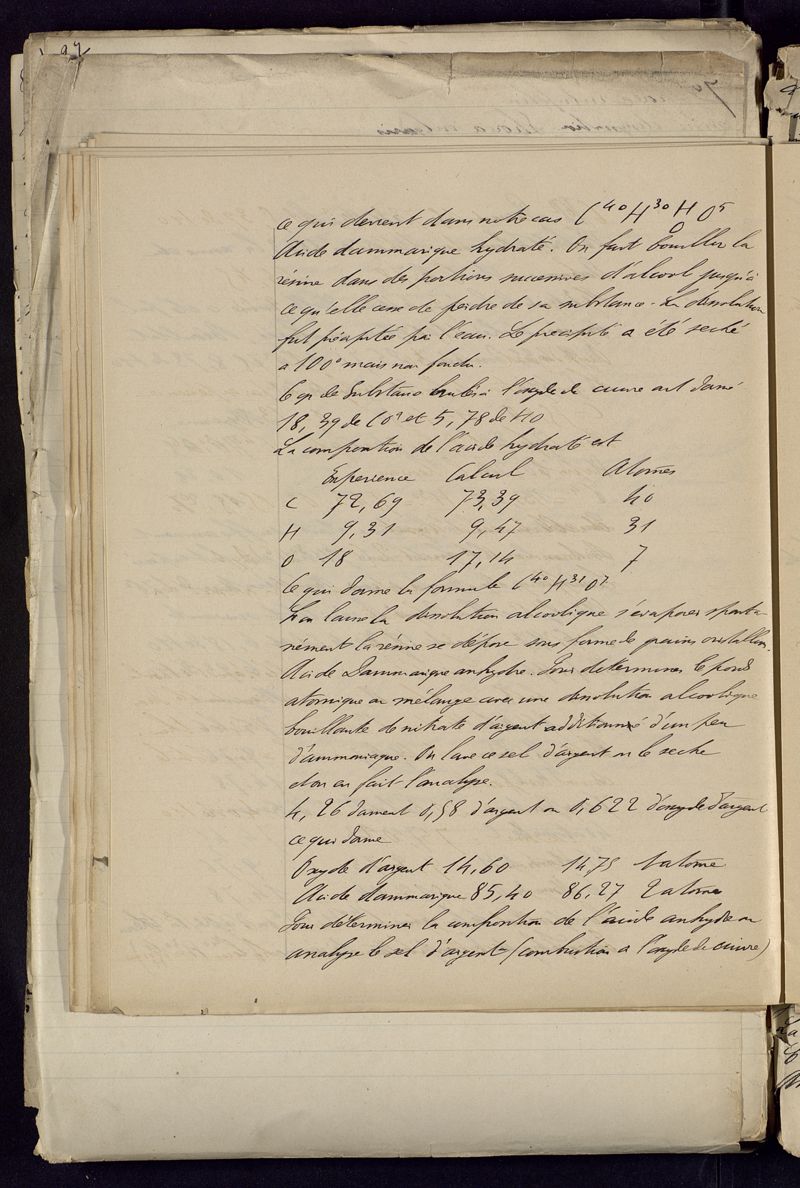 97
ce qui devient dans notre cas C⁴⁰H³⁰HO⁵
O
Acide dammarique hydraté. On fait bouillir la
résine dans des portions successives d'alcool jusqu'à
ce qu'elle cesse de perdre de sa substance. La dissolution
fut précipitée par l'eau. Le précipité a été seché
a 100° mais non fondu.
6 gr de substance brulés à l'oxyde de cuivre ont donné
18,39 de CO² et 5,78 de HO
La composition de l'acide hydraté est
Expérience Calcul Atomes
C 72,69 73,39 40
H 9,31 9,47 31
O 18 17,14 7
Ce qui donne la formule C⁴⁰H³¹O⁷
Si on laisse la dissolution alcoolique s'évaporer sponta-
nément la résine se dépose sous forme de grains cristallins.
Acide Dammarique anhydre. Pour déterminer le poids
atomique on mélange avec une dissolution alcoolique
bouillante de nitrate d'argent additionné d'un peu
d'ammoniaque. On lave ce sel d'argent on le seche
et on en fait l'analyse.
4,26 donnent 0,58 d'argent ou 0,622 d'oxyde d'argent
ce qui donne
Oxyde d'argent 14,60 14,75 1 atome
Acide dammarique 85,40 86,27 2 atomes
Pour déterminer la composition de l'acide anhydre on
analyse le sel d'argent (combustion a l'oxyde de cuivre)